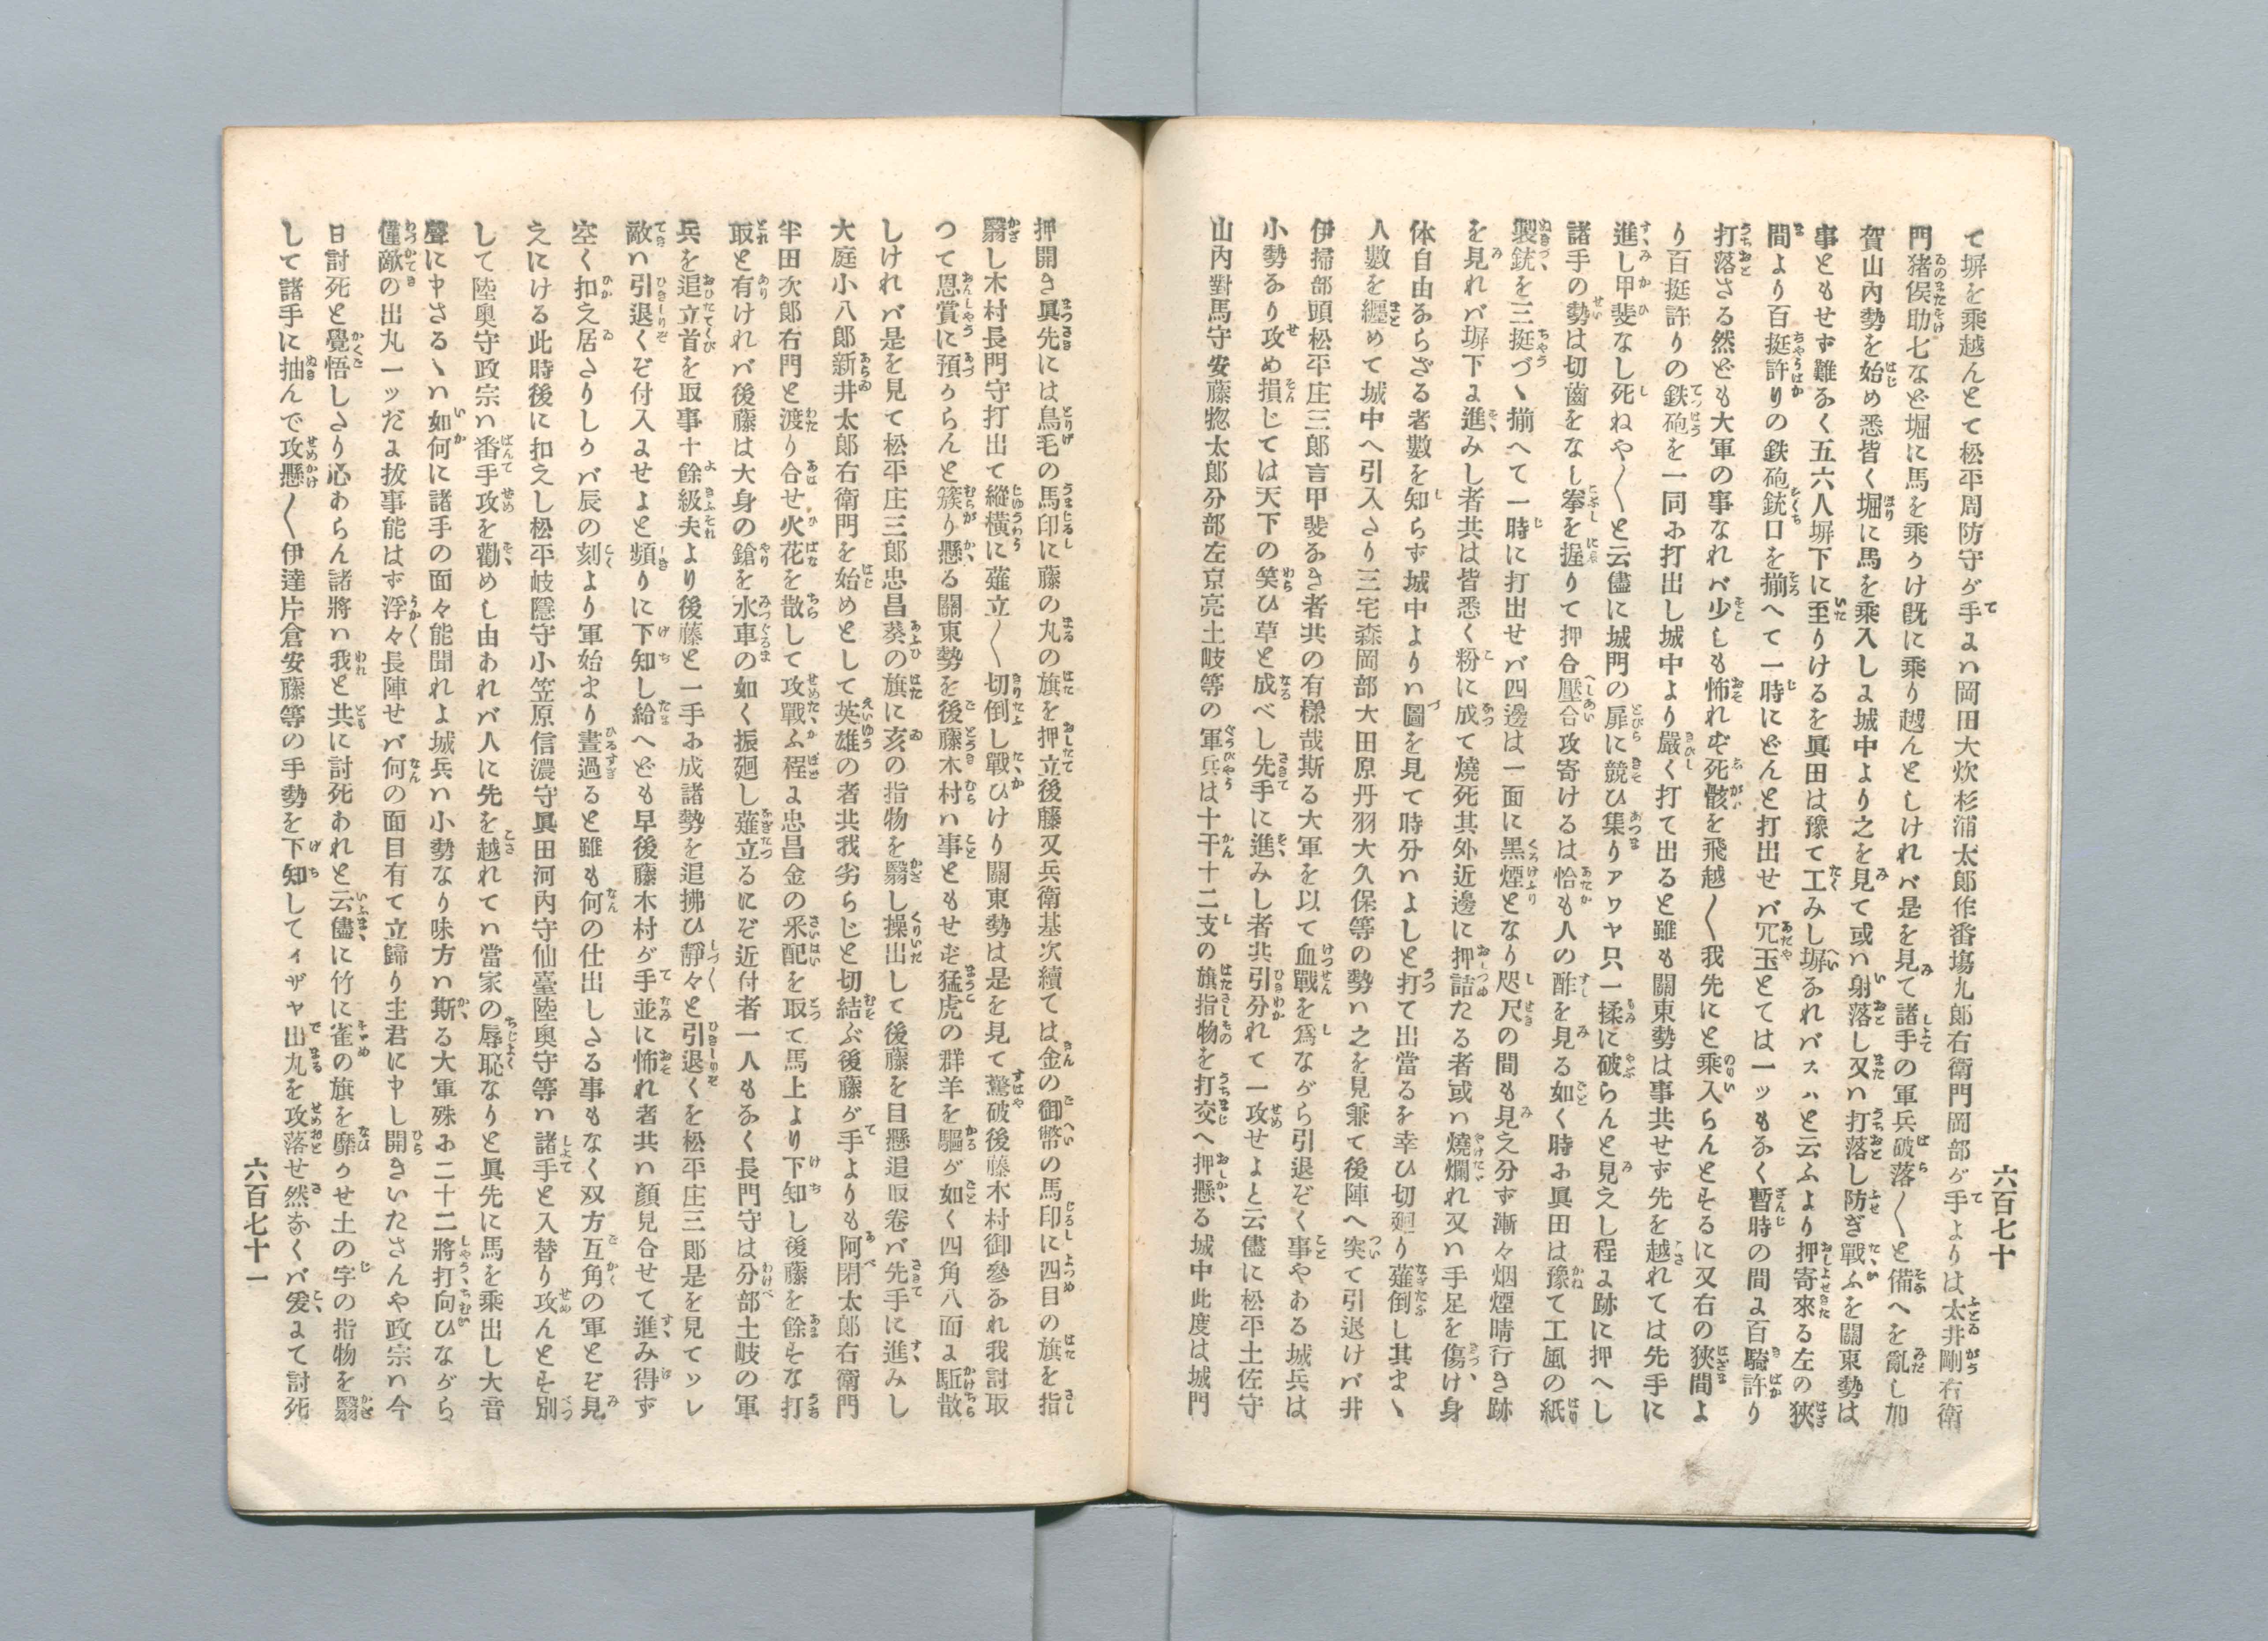 六百七十
て塀を乗越んとて松平周防守が手よハ岡田大炊杉浦太郎作番塲九郎右衛門岡部が手よりは太井剛右衛
門猪俣助七など堀に馬を乗うけ既に乗り越んとしけれバ是を見て諸手の軍兵破落〱と備へを亂し加
賀山内勢を始め悉皆く堀に馬を乘入しよ城中より之を見て或ハ射落し又ハ打落し防ぎ戰ふを關東勢は
事ともせず難なく五六人塀下に至りけるを眞田は豫て工みし塀なれバスハと云ふより押寄來る左の狹
間より百挺許りの鉄砲銃口を揃へて一時にどんと打出せバ冗玉とては一ッもなく暫時の間よ百騎許り
打落さる然ども大軍の事なれバ少しも怖れず死骸を飛越〱我先にと乘入らんとするに又右の狹間よ
り百挺許りの鉄砲を一同に打出し城中より嚴く打て出ると雖も關東勢は事共せず先を越れては先手に
進し甲斐なし死ねや〱と云儘に城門の扉に競ひ集りアワヤ只一揉に破らんと見えし程よ跡に押へし
諸手の勢は切齒をなし拳を握りて押合壓合攻寄けるは恰も人の酢を見る如く時に眞田は豫て工風の紙
製銃を三挺づゝ揃へて一時に打出せバ四邊は一面に黑煙となり咫尺の間も見え分ず漸々烟煙晴行き跡
を見れバ塀下よ進みし者共は皆悉く粉に成て燒死其外近邊に押詰たる者或ハ燒爛れ又ハ手足を傷け身
体自由ならざる者數を知らず城中よりハ圖を見て時分ハよしと打て出當るを幸ひ切廻り薙倒し其まゝ
人數を纒めて城中へ引入たり三宅森岡部大田原丹羽大久保等の勢ハ之を見兼て後陣へ突て引退けバ井
伊掃部頭松平庄三郎言甲斐なき者共の有樣哉斯る大軍を以て血戰を爲ながら引退ぞく事やある城兵は
小勢なり攻め損じては天下の笑ひ草と成べし先手に進みし者共引分れて一攻せよと云儘に松平土佐守
山內對馬守安藤惣太郎分部左京亮土岐等の軍兵は十干十二支の旗指物を打交へ押懸る城中此度は城門
押開き眞先には鳥毛の馬印に藤の丸の旗を押立後藤又兵衛基次續ては金の御幣の馬印に四目の旗を指
翳し木村長門守打出て縱橫に薙立〱切倒し戰ひけり關東勢は是を見て驚破後藤木村御參なれ我討取
つて恩賞に預からんと簇り懸る關東勢を後藤木村ハ事ともせず猛虎の群羊を驅が如く四角八面よ駈散
しけれバ是を見て松平庄三郎忠昌葵の旗に亥の指物を翳し操出して後藤を目懸追取卷バ先手に進みし
大庭小八郎新井太郎右衛門を始めとして英雄の者共我劣らじと切結ぶ後藤が手よりも阿閉太郎右衛門
半田次郎右門と渡り合せ火花を散して攻戰ふ程よ忠昌金の釆配を取て馬上より下知し後藤を餘すな打
取と有けれバ後藤は大身の鎗を水車の如く振廻し薙立るにぞ近付者一人もなく長門守は分部土岐の軍
兵を追立首を取事十餘級夫より後藤と一手に成諸勢を追拂ひ靜々と引退くを松平庄三郎是を見てソレ
敵ハ引退くぞ付入よせよと頻りに下知し給へども早後藤木村が手並に怖れ者共ハ顏見合せて進み得ず
空く扣え居たりしかバ辰の刻より軍始まり晝過ると雖も何の仕出したる事もなく双方互角の軍とぞ見
えにける此時後に扣えし松平岐隱守小笠原信濃守眞田河內守仙臺陸奥守等ハ諸手と入替り攻んとす別
して陸奥守政宗ハ番手攻を勸めし由あれバ人に先を越れてハ當家の辱恥なりと眞先に馬を乘出し大音
聲に申さるゝハ如何に諸手の面々能聞れよ城兵ハ小勢なり味方ハ斯る大軍殊に二十二將打向ひながら
僅敵の出丸一ッだよ拔事能はず浮々長陣せバ何の面目有て立歸り主君に申し開きいたさんや政宗ハ今
日討死と覺悟したり心あらん諸將ハ我と共に討死あれと云儘に竹に雀の旗を靡かせ土の字の指物を翳
して諸手に抽んで攻懸〱伊達片倉安藤等の手勢を下知してイザヤ出丸を攻落せ然なくバ爰よて討死
六百七十一